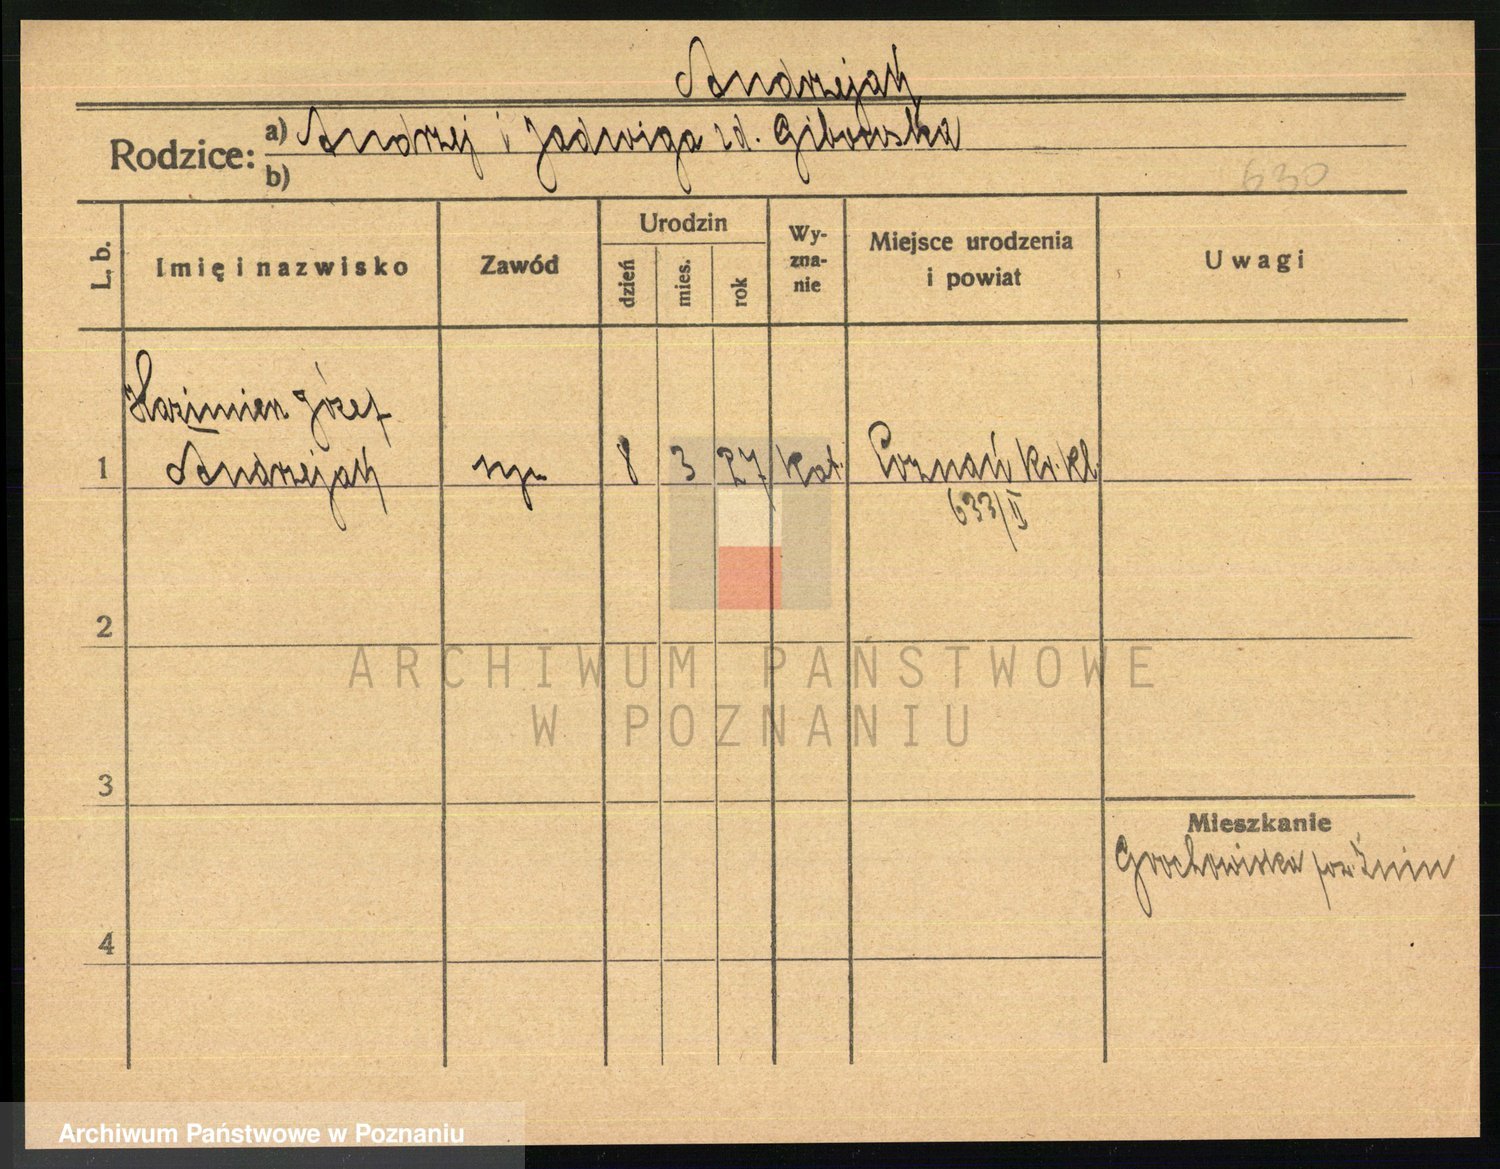 Andrzejań
Rodzice: a) Andrzej i Jadwiga zd. Gibowska
b)
630
L. b.
Imię i nazwisko
Zawód
Urodzin
dzień
mies.
rok
Wy-
zna-
nie
Miejsce urodzenia
i powiat
Uwagi
Kazimierz Józef
1 Andrzejań 8 3 27 kat. Poznań Kr. Kl.
633/II
2
ARCHIWUM PAŃSTWOWE
W POZNANIU
3
Mieszkanie
Grochowiska pow. Żnin
4
Archiwum Państwowe w Poznaniu